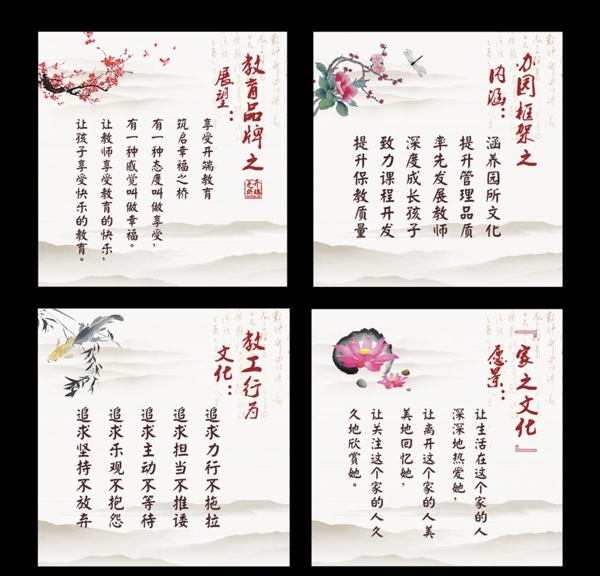 教育品牌之
展望：
享受开端教育
筑启幸福之桥
有一种态度叫做享受，
有一种感觉叫做幸福。
让教师享受教育的快乐，
让孩子享受快乐的教育。
办园框架之
内涵：
涵养园所文化
提升管理品质
率先发展教师
深度成长孩子
致力课程开发
提升保教质量
教工行为
文化：
追求力行不拖拉
追求担当不推诿
追求主动不等待
追求乐观不抱怨
追求坚持不放弃
『家之文化』
愿景：
让生活在这个家的人
深深地热爱她，
让离开这个家的人美
美地回忆她，
让关注这个家的人久
久地欣赏她。